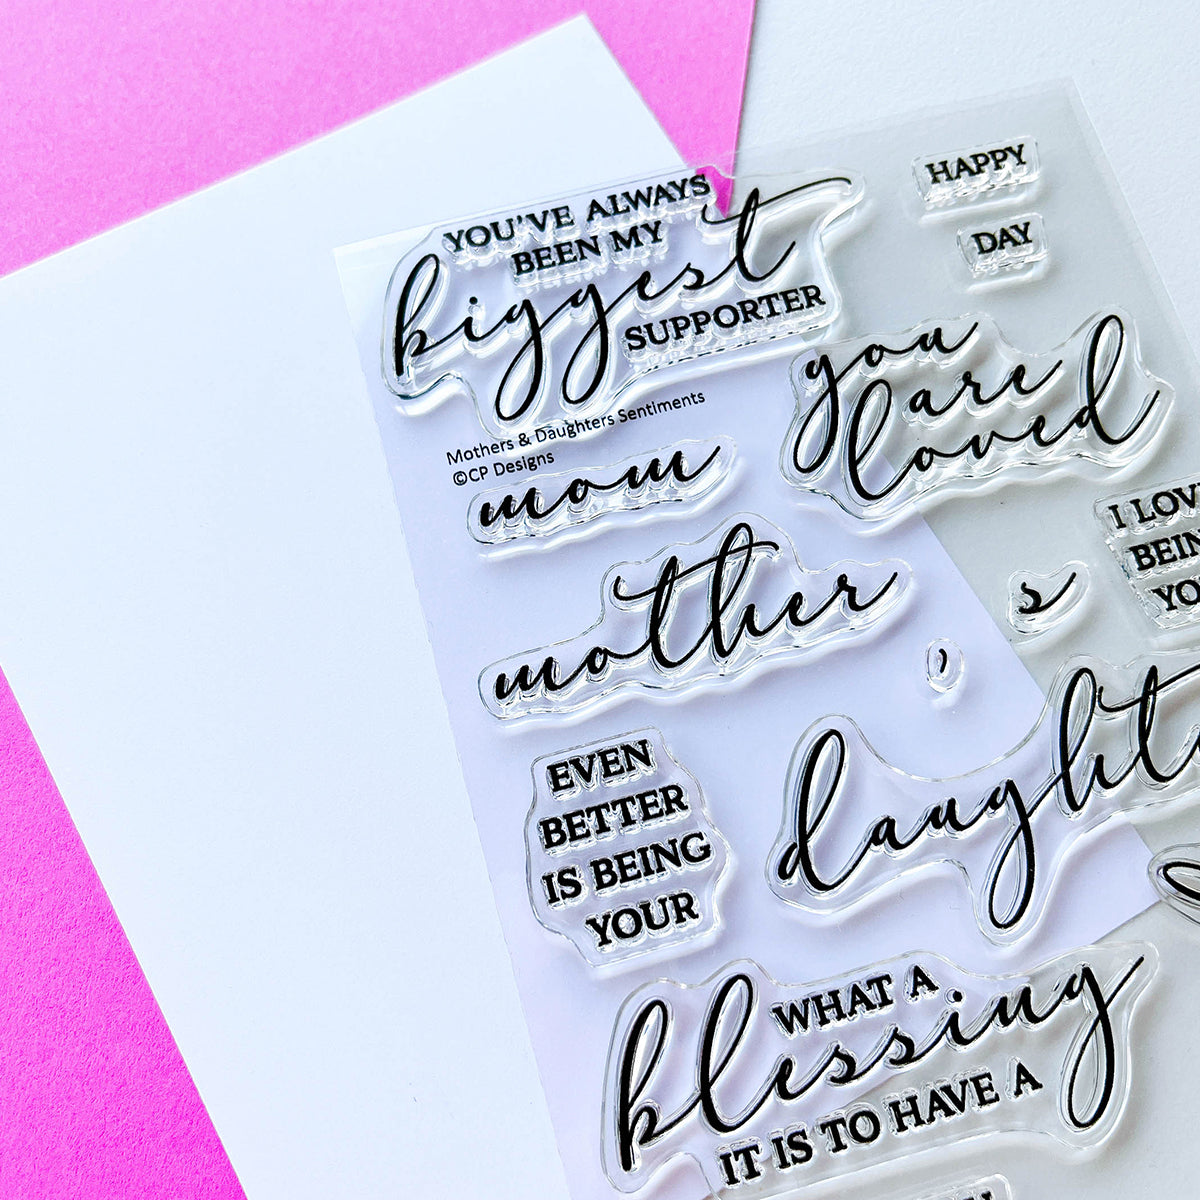 YOU'VE ALWAYS
BEEN MY
biggest
SUPPORTER
HAPPY
DAY
Mothers & Daughters Sentiments
©CP Designs
you
are
loved
mom
mother
I LOV
BEIN
YO
s
'
EVEN
BETTER
IS BEING
YOUR
daught
WHAT A
blessing
IT IS TO HAVE A